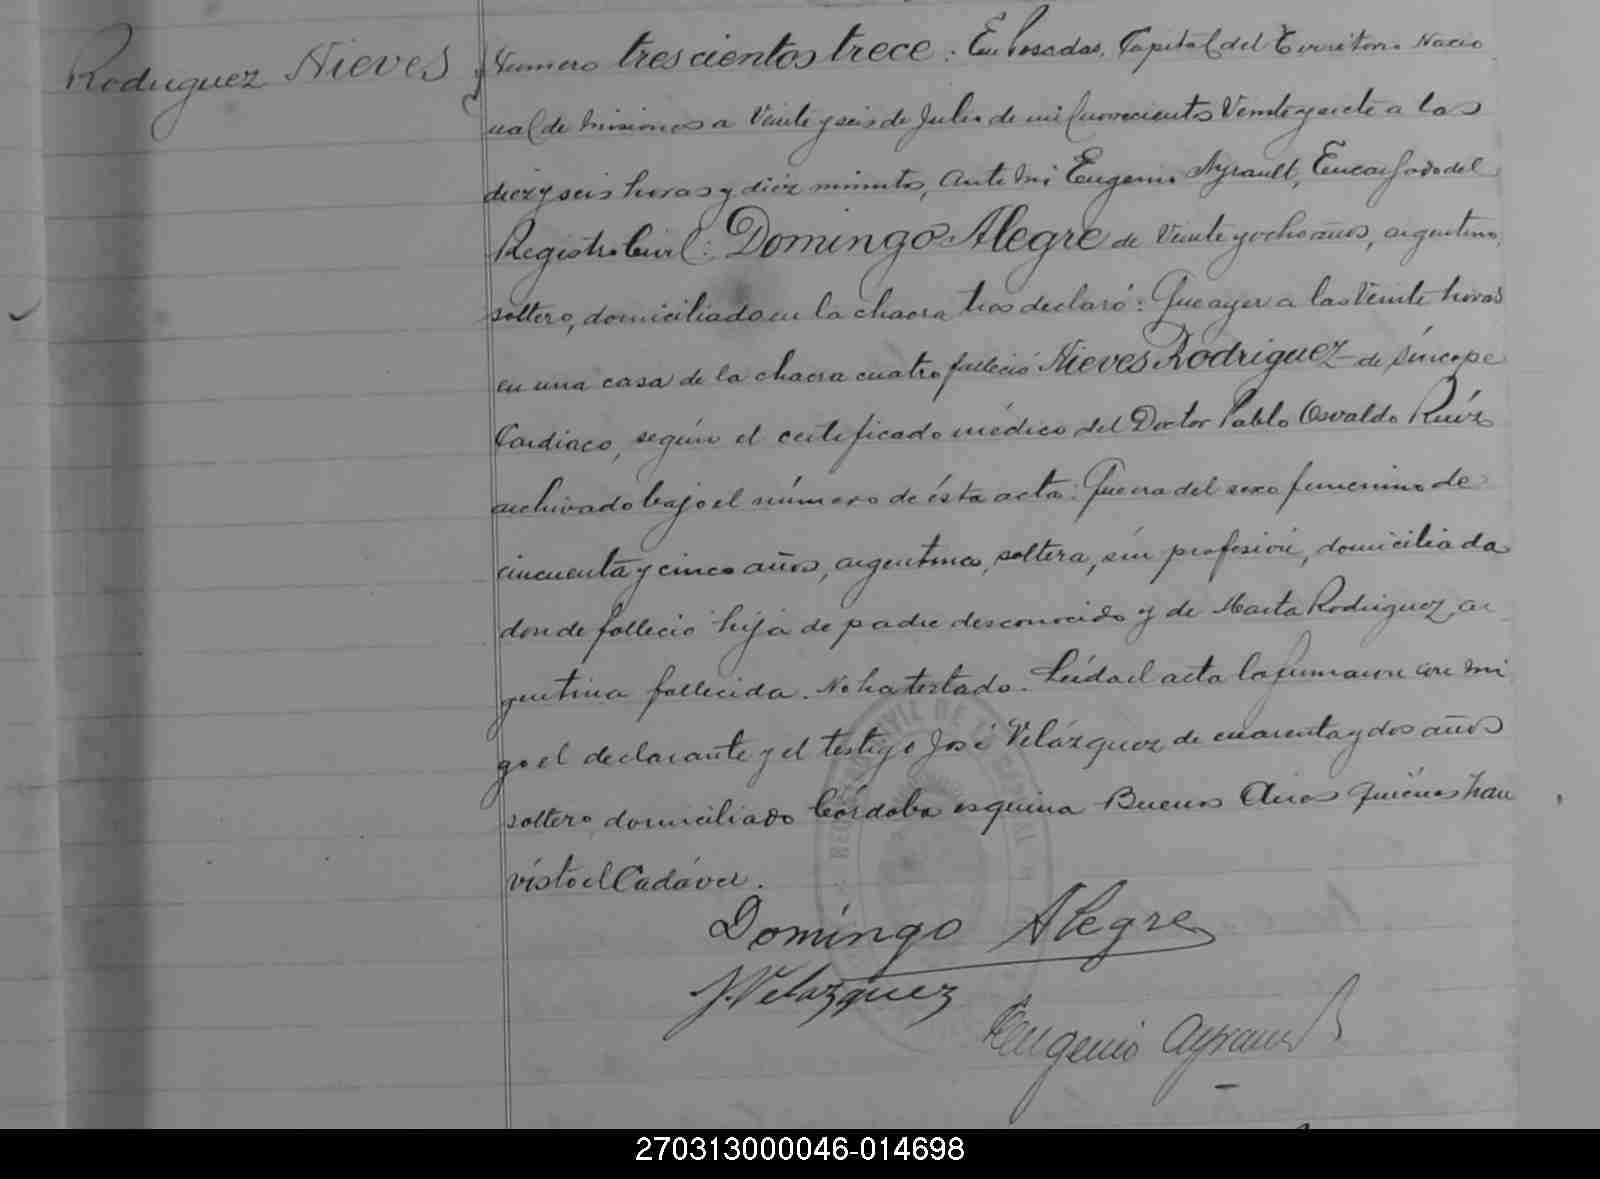 Rodriguez Nieves
Numero trescientos trece: En Posadas, Capital del Territorio Nacio
nal de Misiones a Veinte y seis de Julio de mil novecientos Veinte y siete a las
diez y seis horas y diez minutos, ante mi Eugenio Ayrault, Encargado del
Registro Civil: Domingo Alegre de Veinte y ocho años, argentino,
soltero, domiciliado en la chacra tres declaró: Que ayer a las Veinte horas
en una casa de la chacra cuatro falleció Nieves Rodriguez de síncope
Cardiaco, según el certificado médico del Doctor Pablo Osvaldo Ruíz
archivado bajo el número de ésta acta: Que era del sexo femenino de
cincuenta y cinco años, argentina, soltera, sin profesión, domiciliada
donde falleció hija de padre desconocido y de Marta Rodriguez, ar
gentina fallecida. No ha testado. Leída el acta la firmaron con mi
go el declarante y el testigo José Velázquez de cuarenta y dos años
soltero, domiciliado Córdoba esquina Buenos Aires quiénes han
visto el Cadáver.
Domingo Alegre
J. Velazquez
Eugenio Ayrault
270313000046-014698